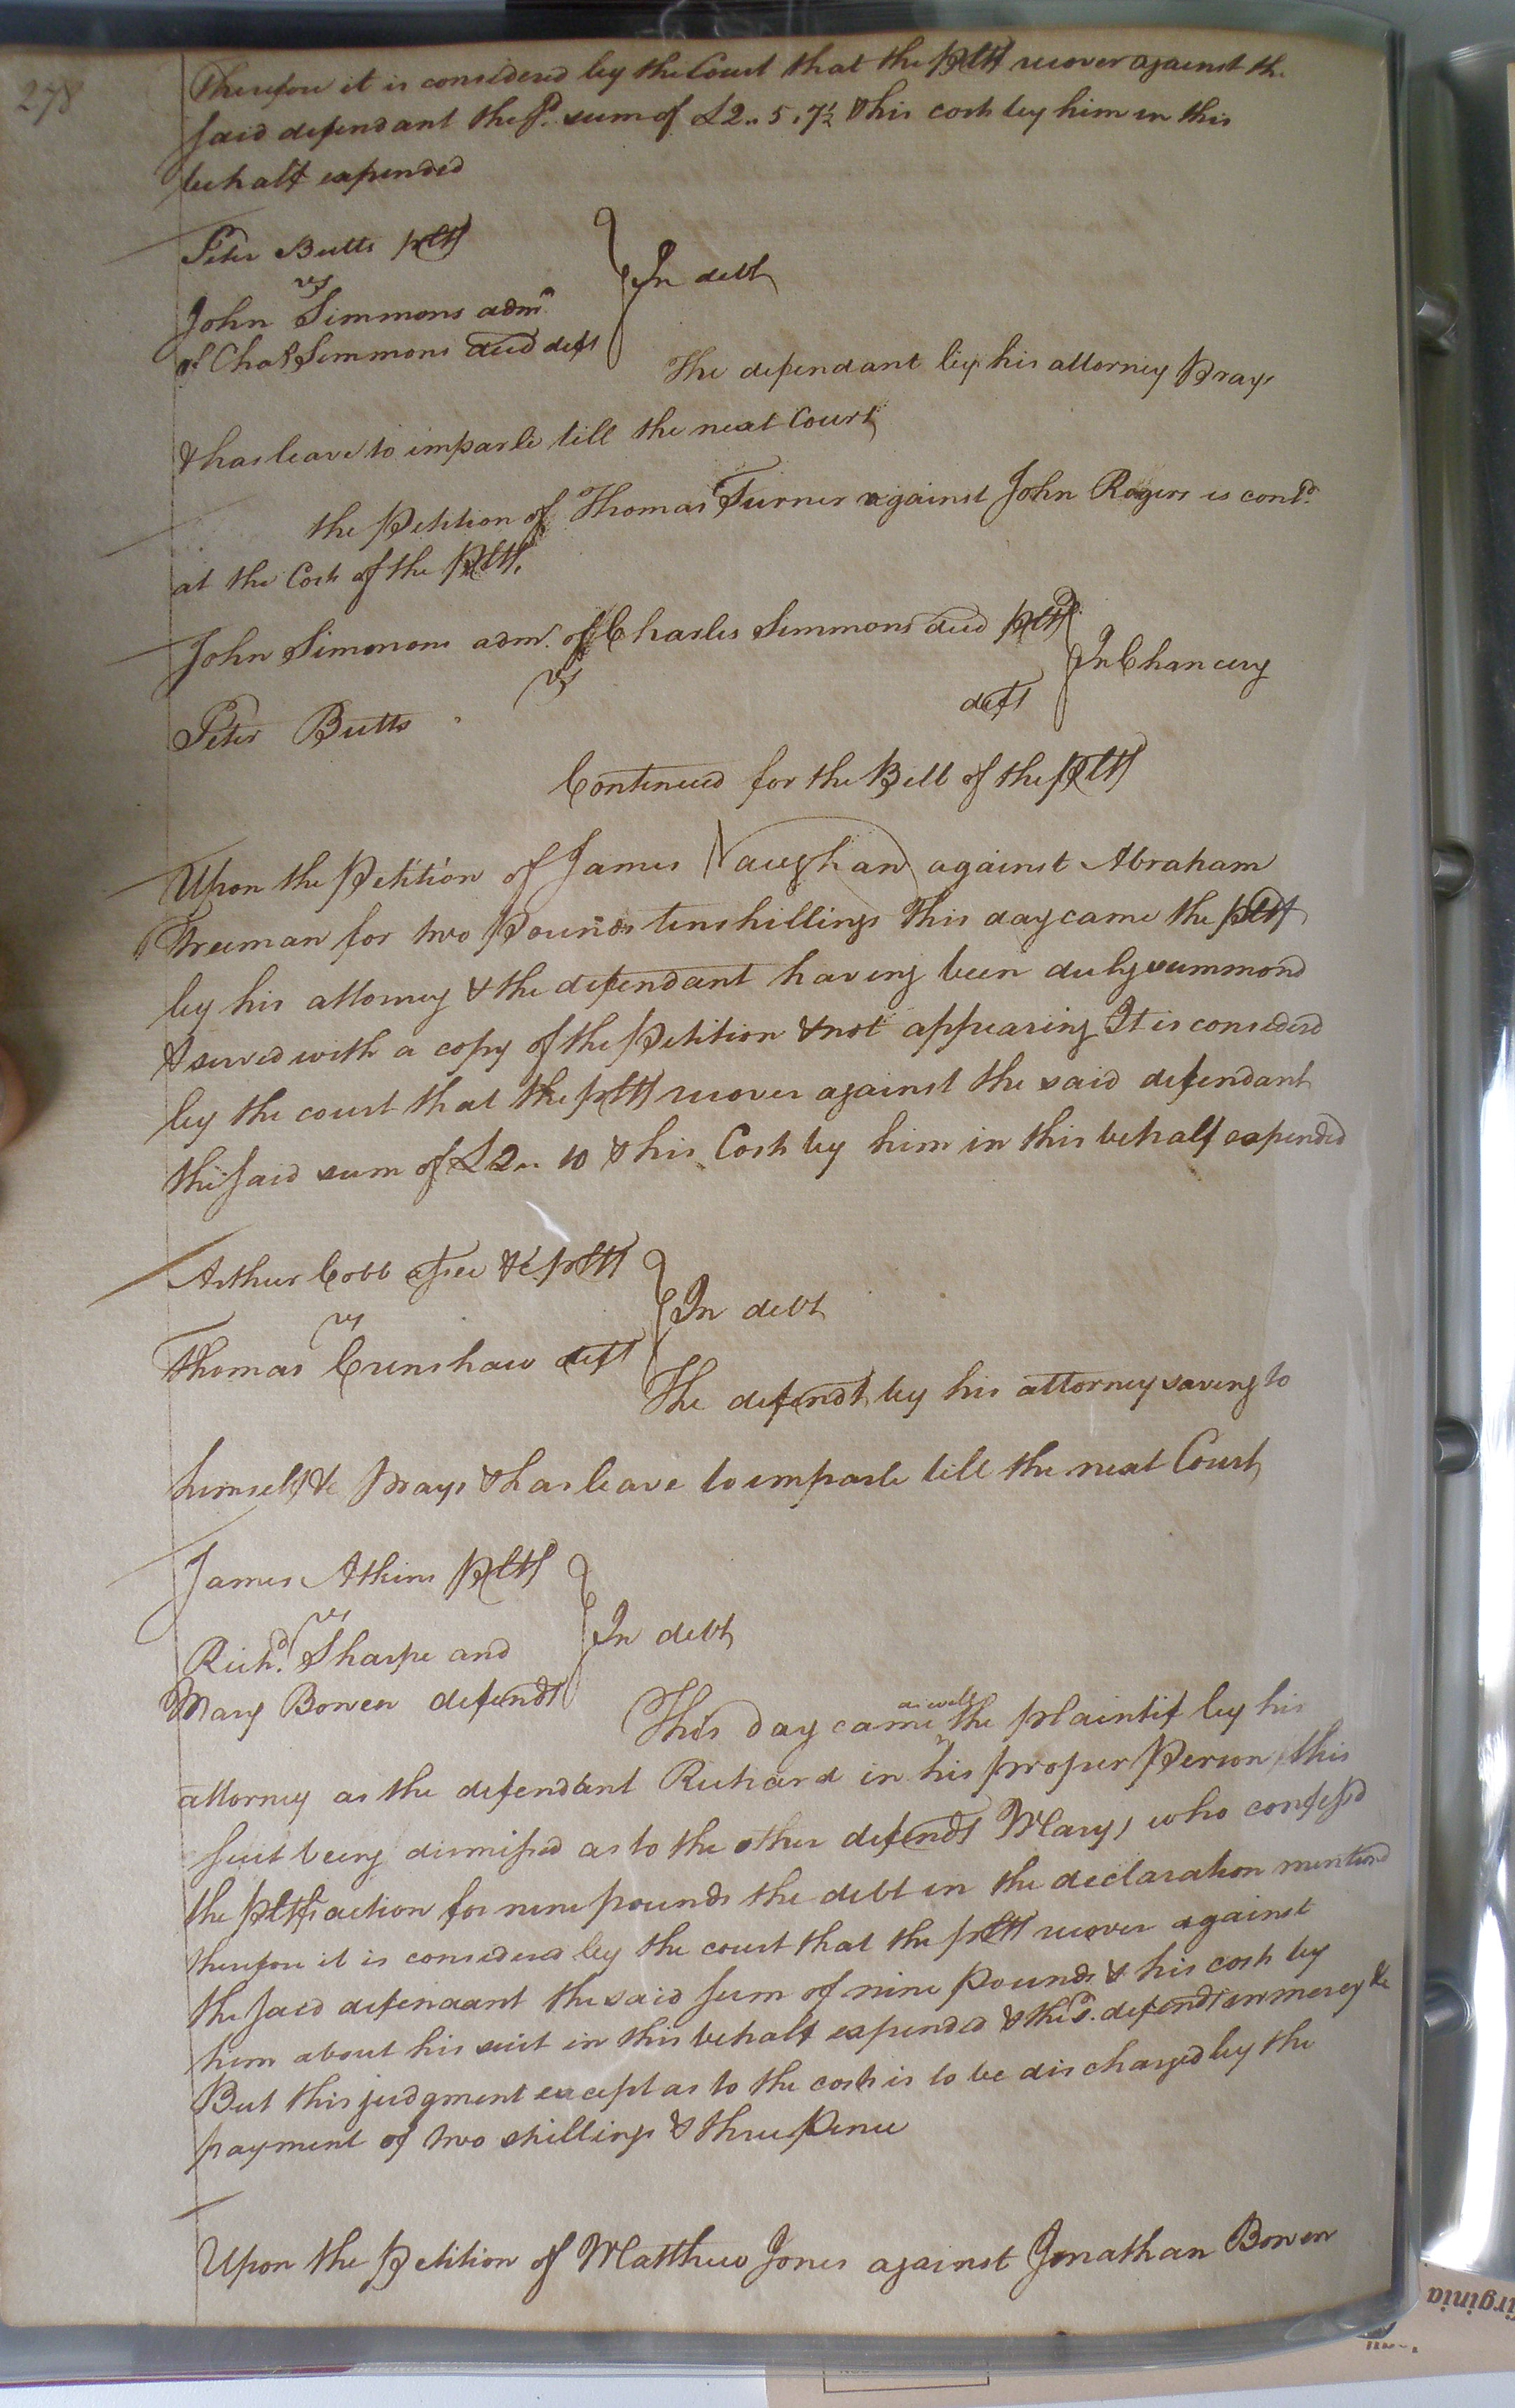 278
Therefore it is considered by the Court that the pltf recover against the
said defendant the sd. sum of £2.. 5. 7½ & his costs by him in this
behalf expended
Peter Butts pltf
In debt
vs
John Simmons admr
of Chas Simmons decd deft
The defendant by his attorney prays
& has leave to imparle till the next Court
the Petition of Thomas Turner against John Rogers is contd.
at the Costs of the Pltf.
John Simmons admr. of Charles Simmons decd pltf
vs
In Chancery
deft
Peter Butts
Continued for the Bill of the Pltf
Upon the Petition of James Vaughan against Abraham
Freeman for two Pounds ten shillings This day came the pltf
by his attorney & the defendant having been duly summond
& served with a copy of the Petition & not appearing It is considerd
by the court that the pltf recover against the said defendant
the said sum of £2.. 10 & his Costs by him in this behalf expended
Arthur Cobb assee &c pltf
In debt
vs
Thomas Crenshaw deft
The defendt by his attorney saving to
himself &c prays & has leave to imparle till the next Court
James Atkins Pltf
vs
In debt
Richd. Sharpe and
Mary Bowen defendts
as well
This day came the plaintif by his
attorney as the defendant Richard in his proper Person (this
suit being dismissed as to the other defendt Mary) who confessd
the pltfs action for nine pounds the debt in the declaration mentiond
therefore it is considered by the court that the pltf recover against
the said defendant the said sum of nine Pounds & his costs by
him about his suit in this behalf expended & the sd. defendt in mercy &c
But this judgment except as to the costs is to be discharged by the
payment of two shillings & three Pence
Upon the Petition of Matthew Jones against Jonathan Bowen
irginia